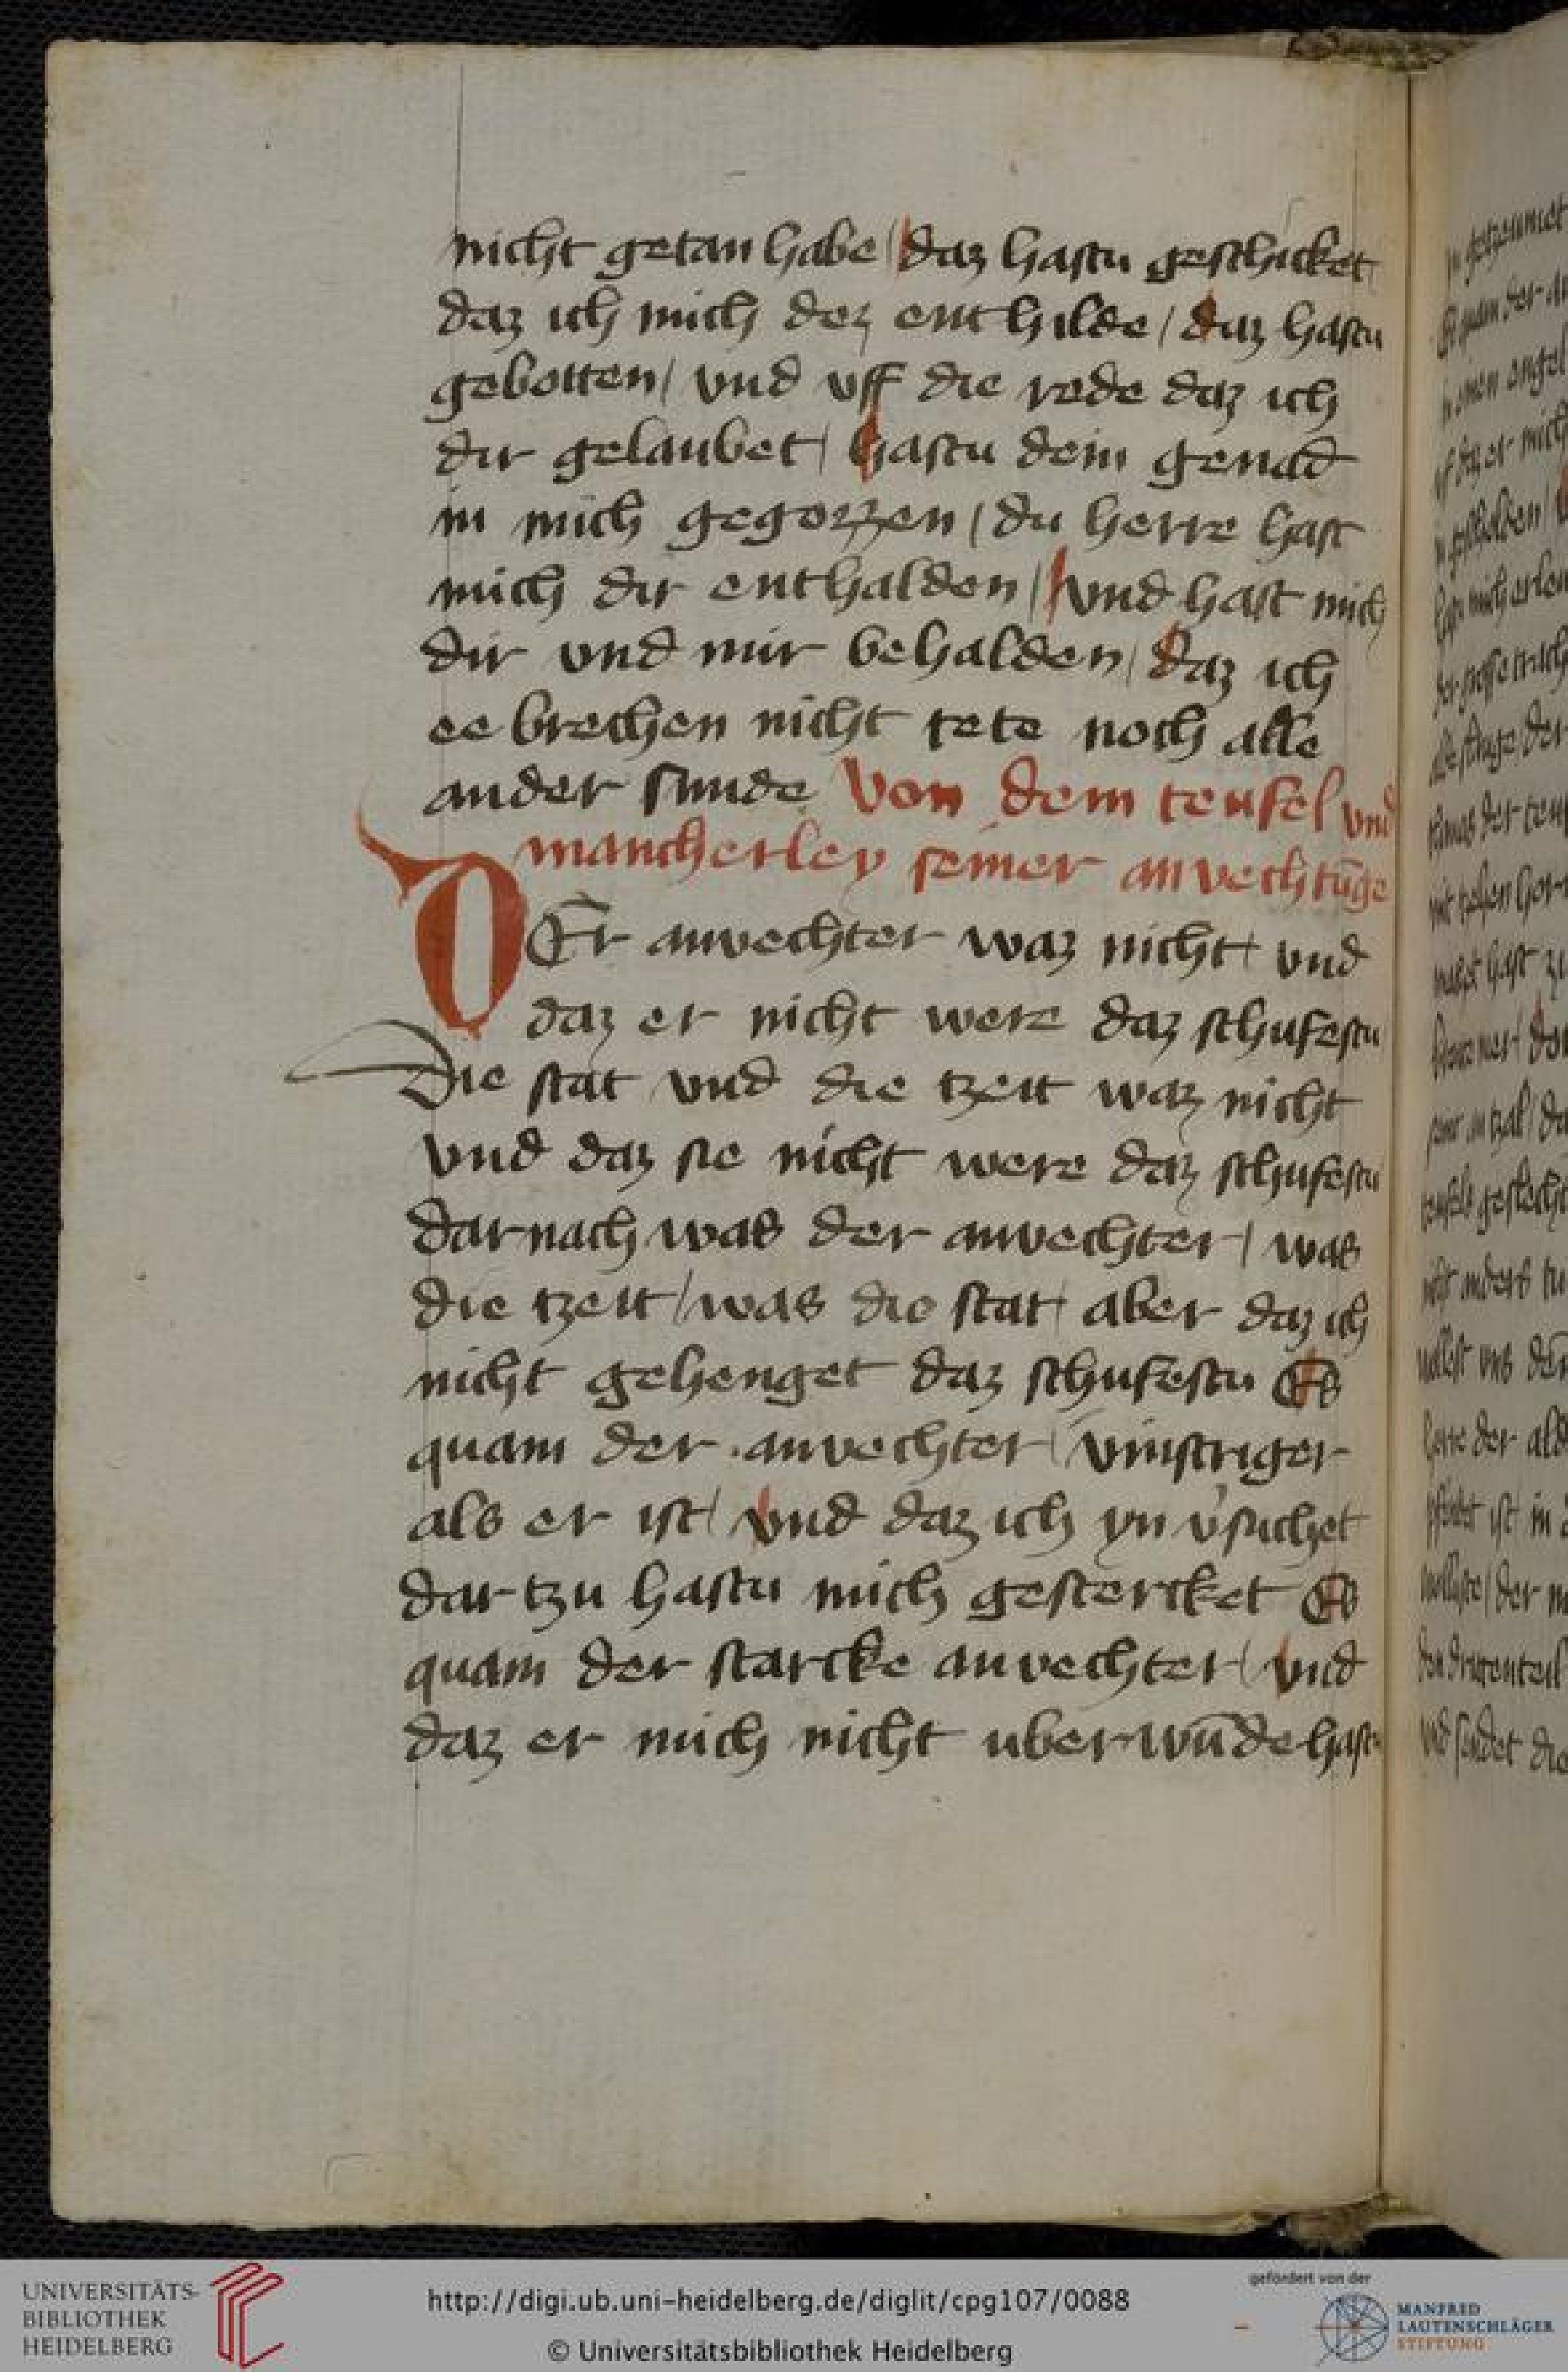 nicht getan habe / daz hastu geschicket
daz ich mich dez enthilde / daz hastu
gebotten / vnd vff die rede daz ich
dir gelaubet / hastu dein genad
in mich gegozzen / du herre hast
mich dir enthalden / vnd hast mich
dir vnd mir behalden / daz ich
ee brechen nicht tete noch alle
ander sunde Von dem teufel vnd
mancherley seiner anvechtūge
DEr anvechter waz nicht / vnd
daz er nicht were daz schufestu
Die stat vnd die tzeit waz nicht
vnd daz sie nicht were daz schufestu
darnach was der anvechter / was
die tzeit / was die stat / aber daz ich
nicht gehenget daz schufestu Es
quam der anvechter / vinstriger
als er ist / vnd daz ich yn v̓suchet
dar tzu hastu mich gestercket Es
quam der starcke anvechter / vnd
daz er mich nicht uberwūde hastu
UNIVERSITÄTS-
BIBLIOTHEK
HEIDELBERG
http://digi.ub.uni-heidelberg.de/diglit/cpg107/0088
© Universitätsbibliothek Heidelberg
gefördert von der
MANFRED
LAUTENSCHLÄGER
STIFTUNG